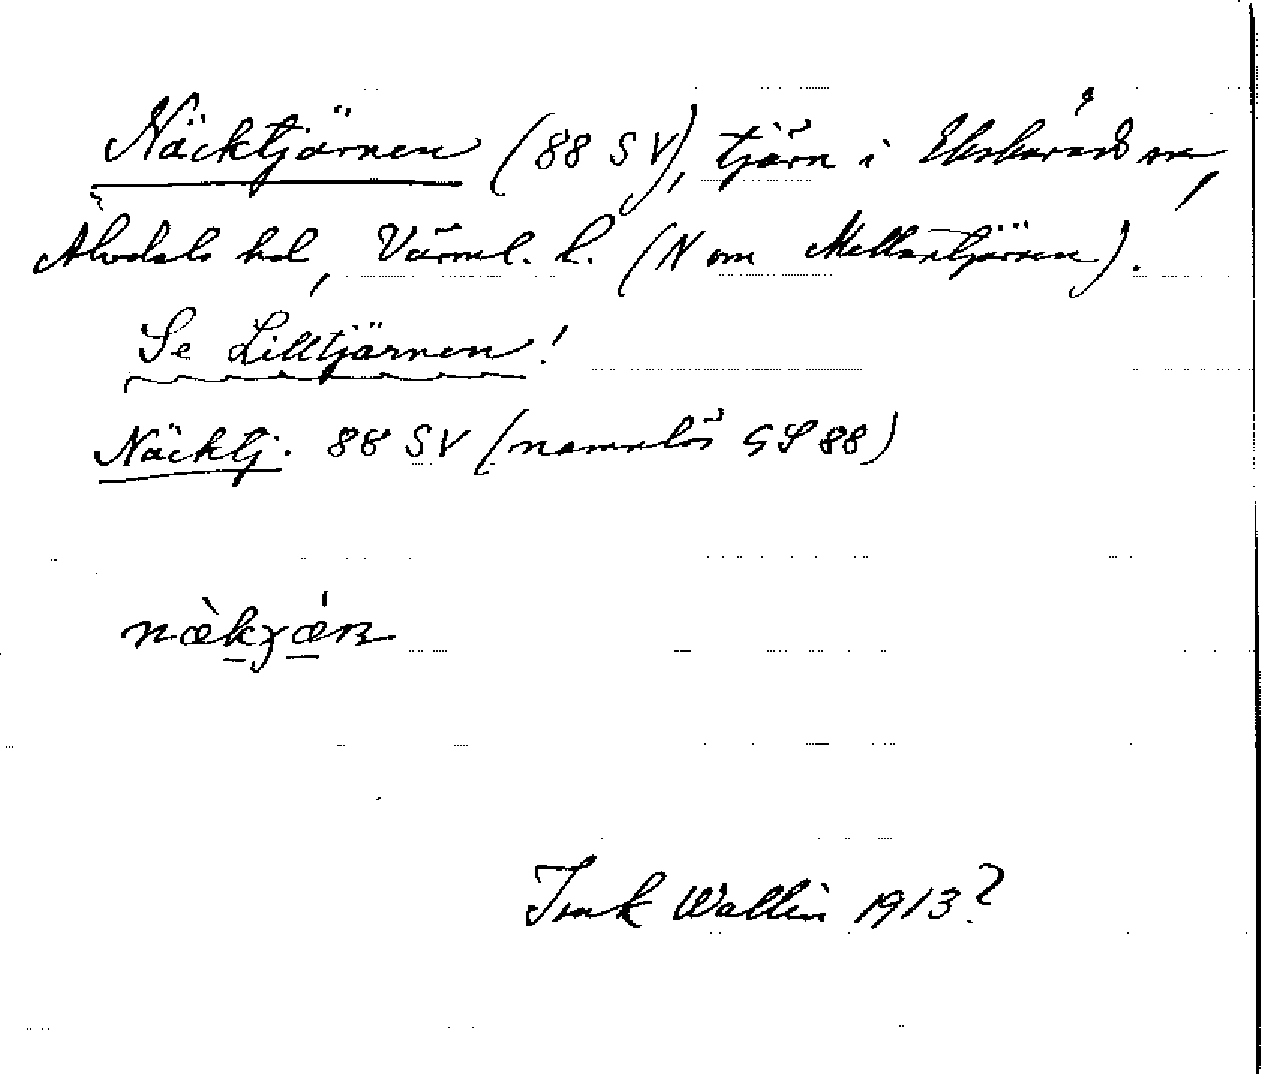 Näcktjärnen (88 SV), tjärn i Ekshärads sn,
Älvdals hd, Värml. l. (N om Mellantjärnen).
Se Lilltjärnen!
Näcktj. 88 SV (namnlös GS 88)
Isak Wallin 1913?